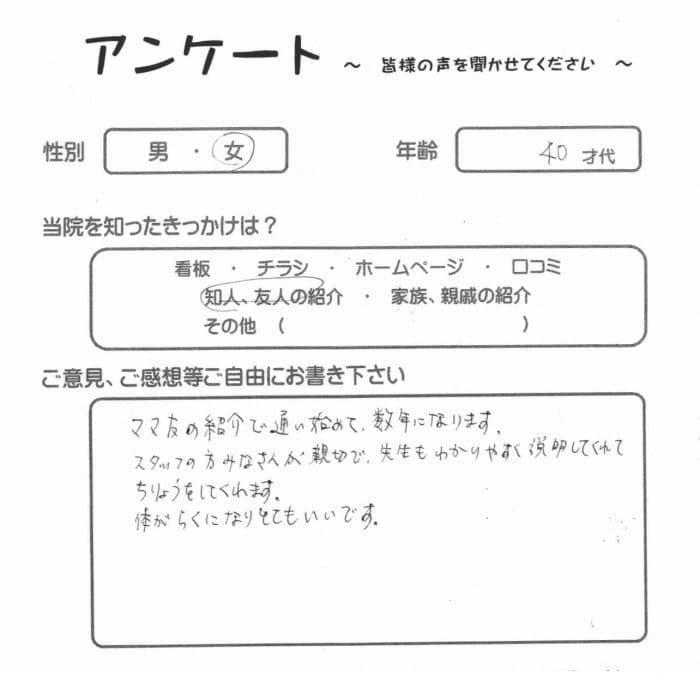 アンケート ～ 皆様の声を聞かせてください ～
性別 男 ・ 女 年齢 40 才代
当院を知ったきっかけは？
看板 ・ チラシ ・ ホームページ ・ 口コミ
知人、友人の紹介 ・ 家族、親戚の紹介
その他 ( )
ご意見、ご感想等ご自由にお書き下さい
ママ友の紹介で通い始めて、数年になります。
スタッフの方みなさんが親切で、先生もわかりやすく説明してくれて
ちりょうをしてくれます。
体がらくになりとてもいいです。